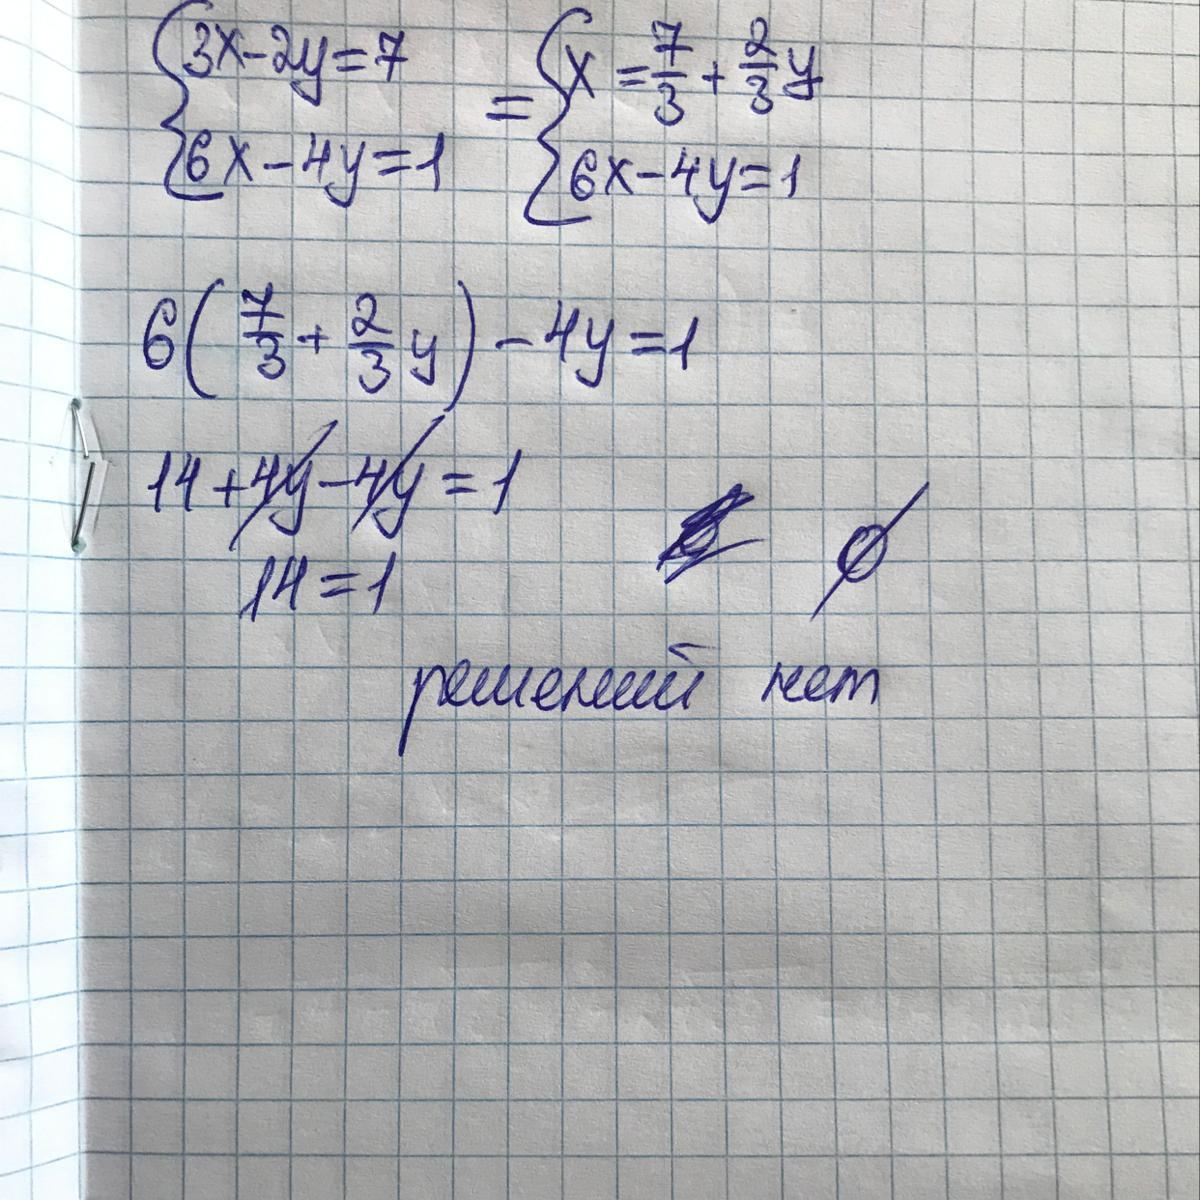 3x-2y=7 = x=7/3+2/3y
6x-4y=1 6x-4y=1
6(7/3+2/3y)-4y=1
14+4y-4y=1
14=1 ∅
решений нет